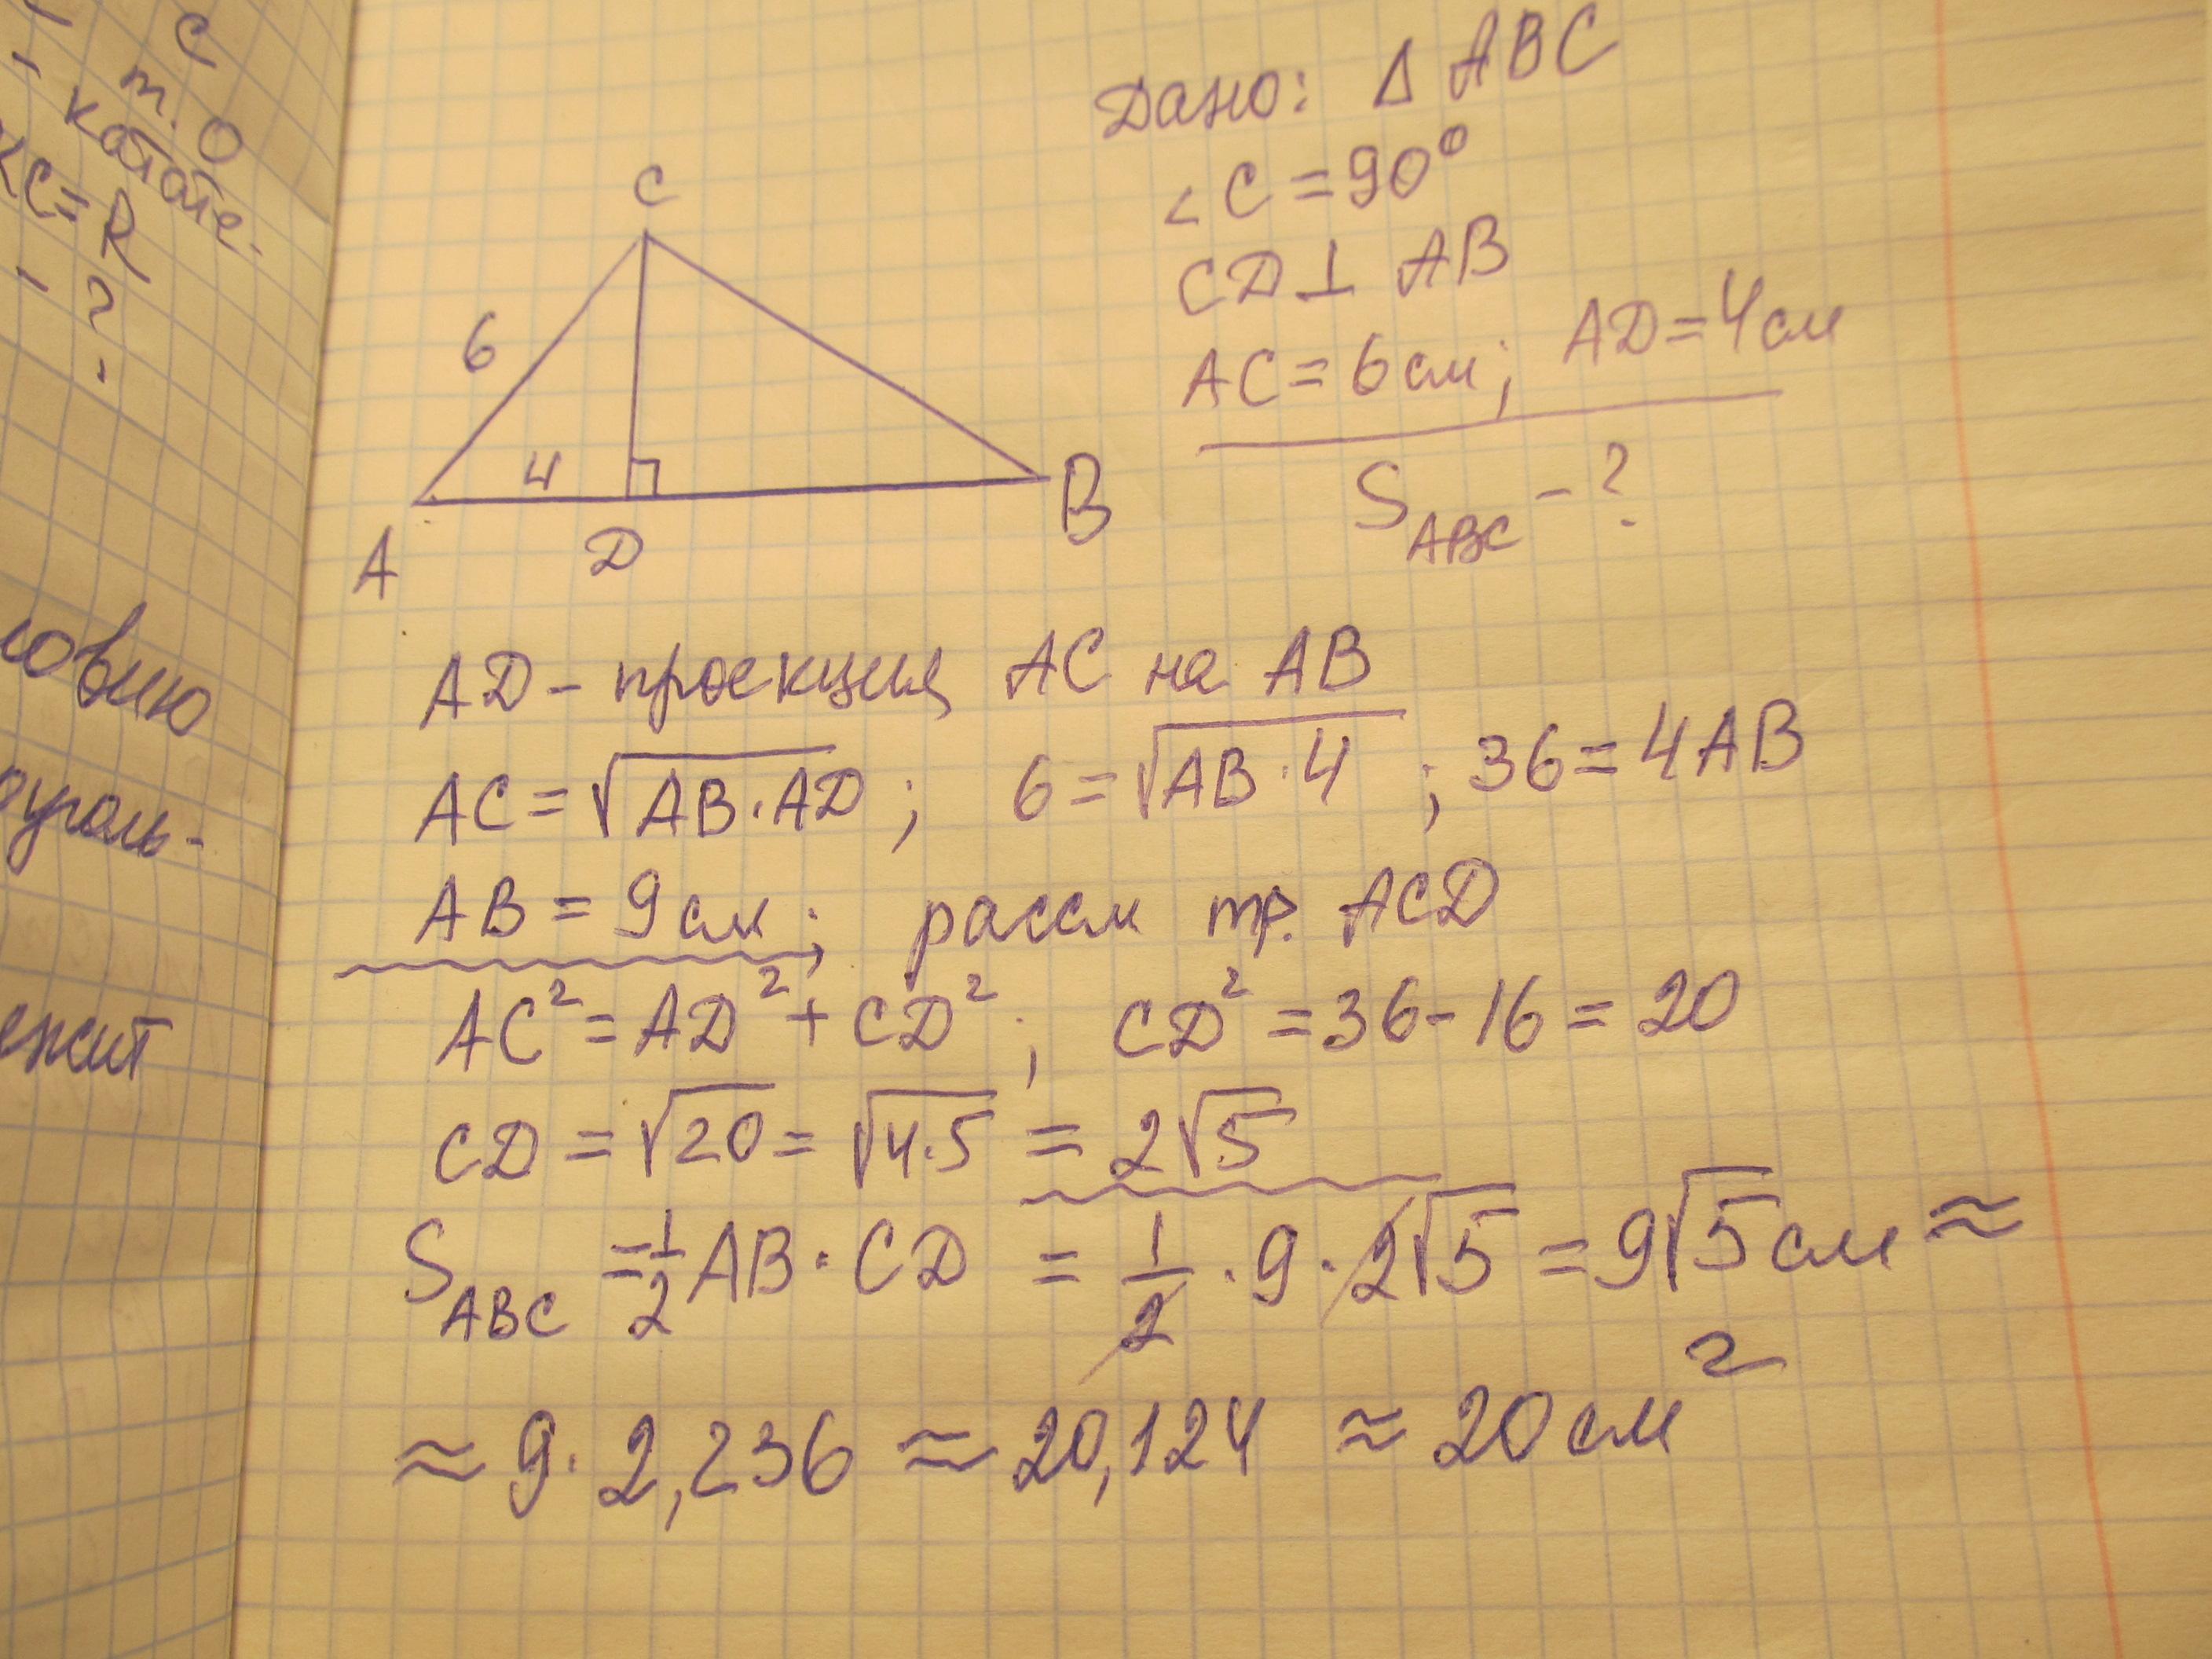 с
т. О
- катате-
∠C=R
- ?
ловию
оуголь-
ежит
C
6
4
A
D
B
Дано: Δ ABC
∠C=90°
CD⊥ AB
AC=6см; AD=4см
S_ABC - ?
AD - проекция AC на AB
AC=√AB·AD; 6=√AB·4 ; 36=4AB
AB=9см; рассм тр. ACD
AC²=AD²+CD²; CD²=36-16=20
CD=√20=√4·5 =2√5
S_ABC =1/2 AB·CD = 1/2·9·2√5=9√5см ≈
≈ 9·2,236 ≈ 20,124 ≈ 20см²